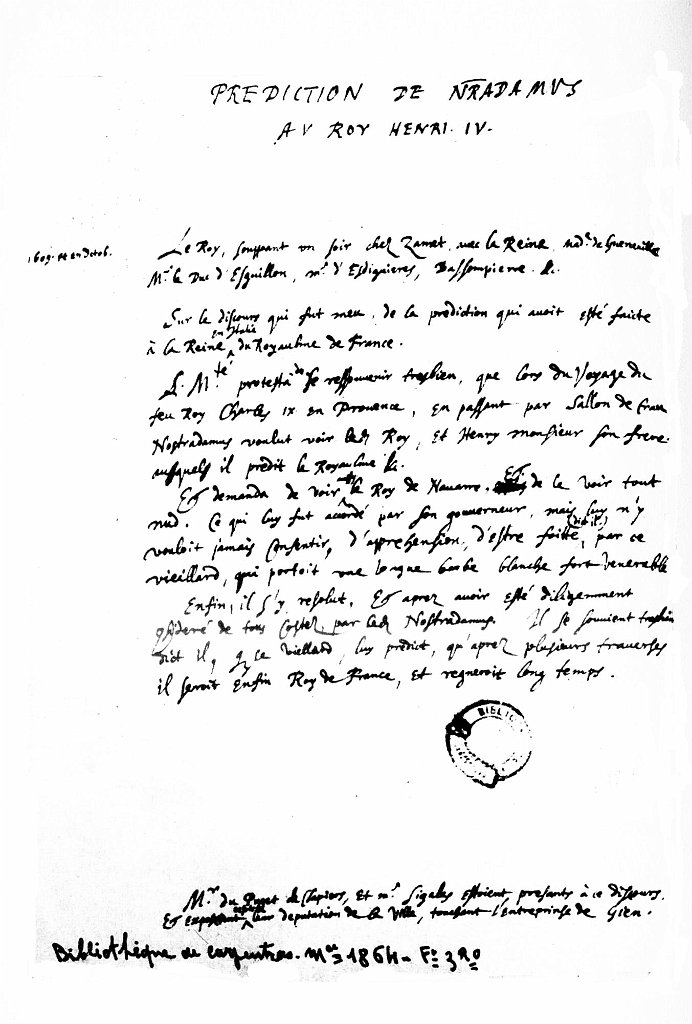 PREDICTION DE NRADAMUS
AU ROY HENRI. IV.
1609. et en Octob.
Le Roy, souppant un soir chez Zamet, avec la Reine, Mad.e de Guerneville
M.r le Duc d'Esguillon, m.r d'Esdiguieres, Bassompierre &c.
Sur le discours qui fut meu, de la prediction qui avoit esté faicte
en Italie
à la Reine ^ du Royaulme de France.
S. M.té protesta de se ressouvenir tresbien, que lors du Voyage du
feu Roy Charles IX en Provence, en passant par Sallon de Craux
Nostradamus voulut voir led. Roy, et Henry monsieur son frere.
ausquels il predit le Royaulme &c.
Et demanda de voir le Roy de Navarre. Et de le voir tout
nud. Ce qui luy fut accordé par son gouverneur, mais luy n'y
vouloit jamais consentir, d'apprehension (dict il) d'estre foitté, par ce
vieillard, qui portoit une longue barbe blanche fort venerable
Enfin, il s'y resolut. Et aprez avoir esté diligemment
consideré de tous costez, par led. Nostradamus. Il se souvient tresbien
dict il, q. ce viellard, luy predict, qu'aprez plusieurs traverses
il seroit enfin Roy de France, et regneroit long temps.
BIBLIO
M.r du Puget de Clapiers, et m.r Sigales estoient presants à ce discours.
Et leur deputation de la Ville, touchant l'entreprinse de Gien.
Bibliothèque de Carpentras. Mss 1864. F° 3 R°